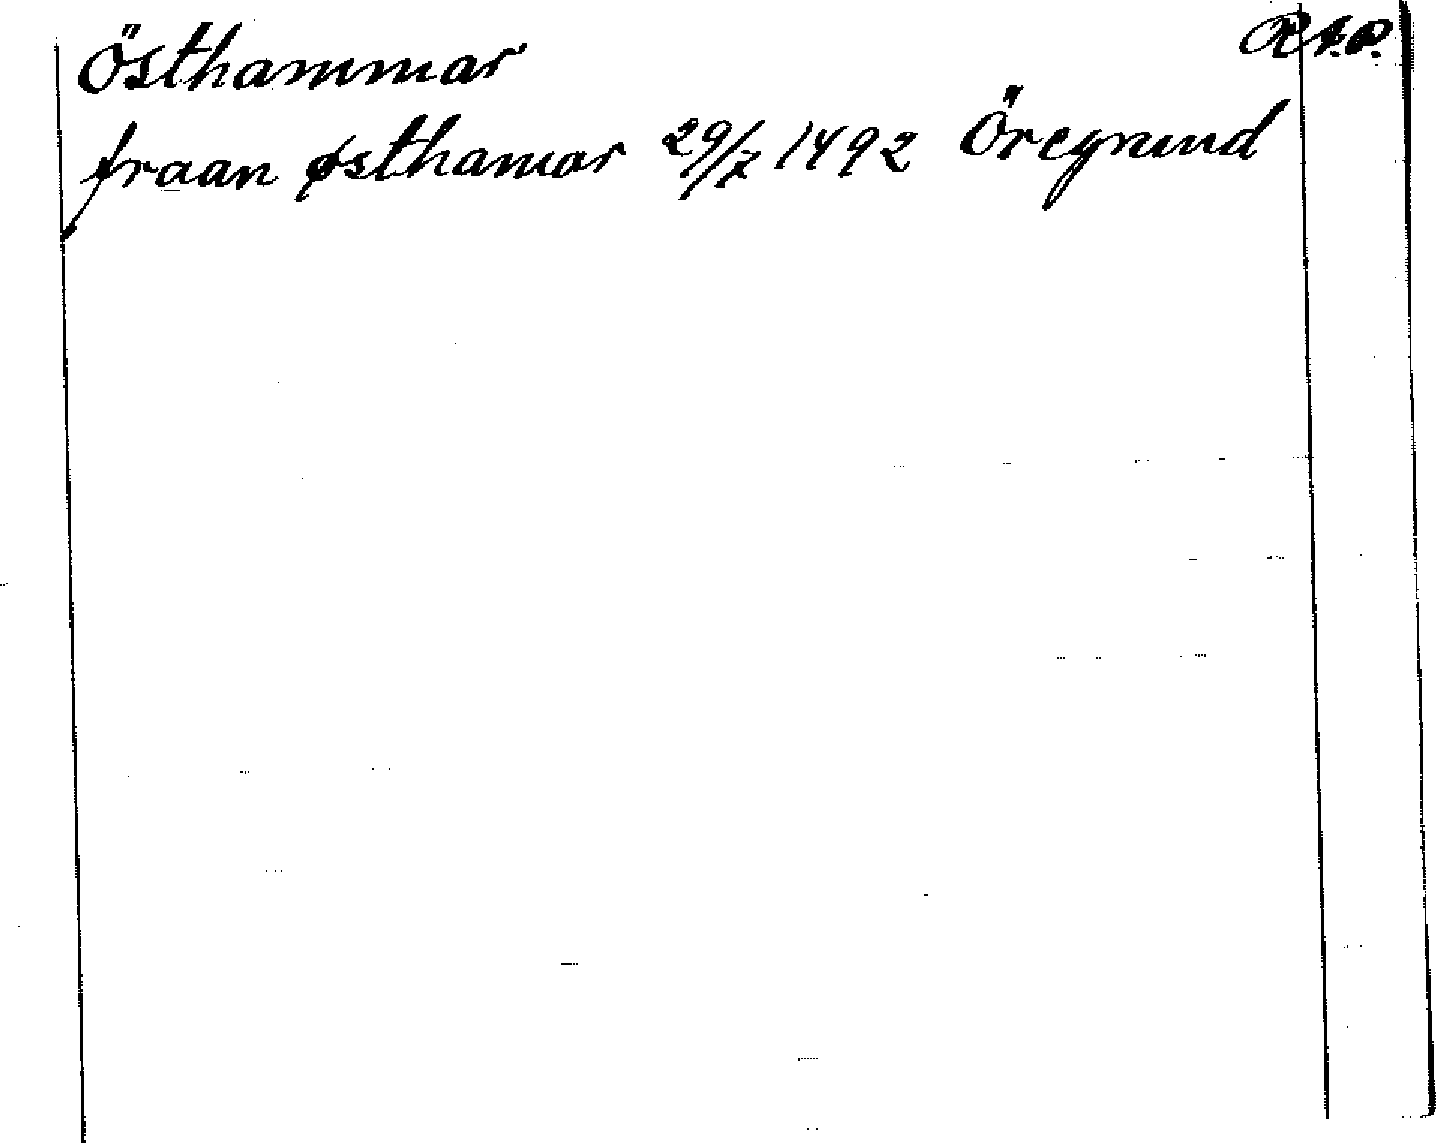 Östhammar R.A.P.
fraan østhamar 29/7 1492 Öregrund